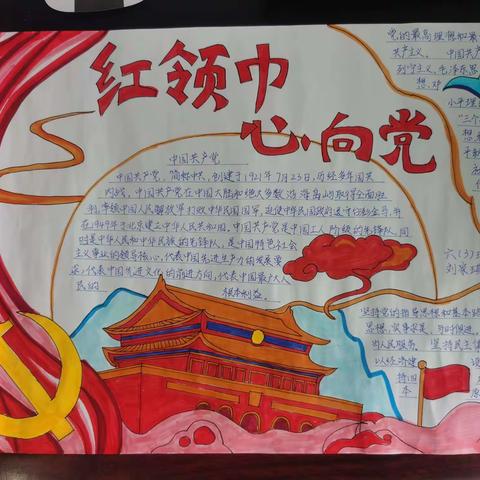 红领巾
心向党
中国共产党
中国共产党，简称中共，创建于1921年7月23日，历经多年国共
内战，中国共产党在中国大陆和绝大多数沿海岛屿取得全面胜
利，率领中国人民解放军打败中华民国国军，迫使中华民国政府退守
并
在1949年于北京建立中华人民共和国。中国共产党是中国工人阶级的先锋队，同
时是中华人民和中华民族的先锋队，是中国特色社会
主义事业的领导核心，代表中国先进生产力的发展要
求，代表中国先进文化的前进方向，代表中国最广大人
民的 根本利益。
党的最高理想和最
共产主义。 中国共产
列宁主义、毛泽东思
想、邓
小平理
"三个
想
六(3)
坚持党的指导思想和基本
思想，实事求是，与时俱进。
为人民服务。 坚持民主
以经济建
持四
本